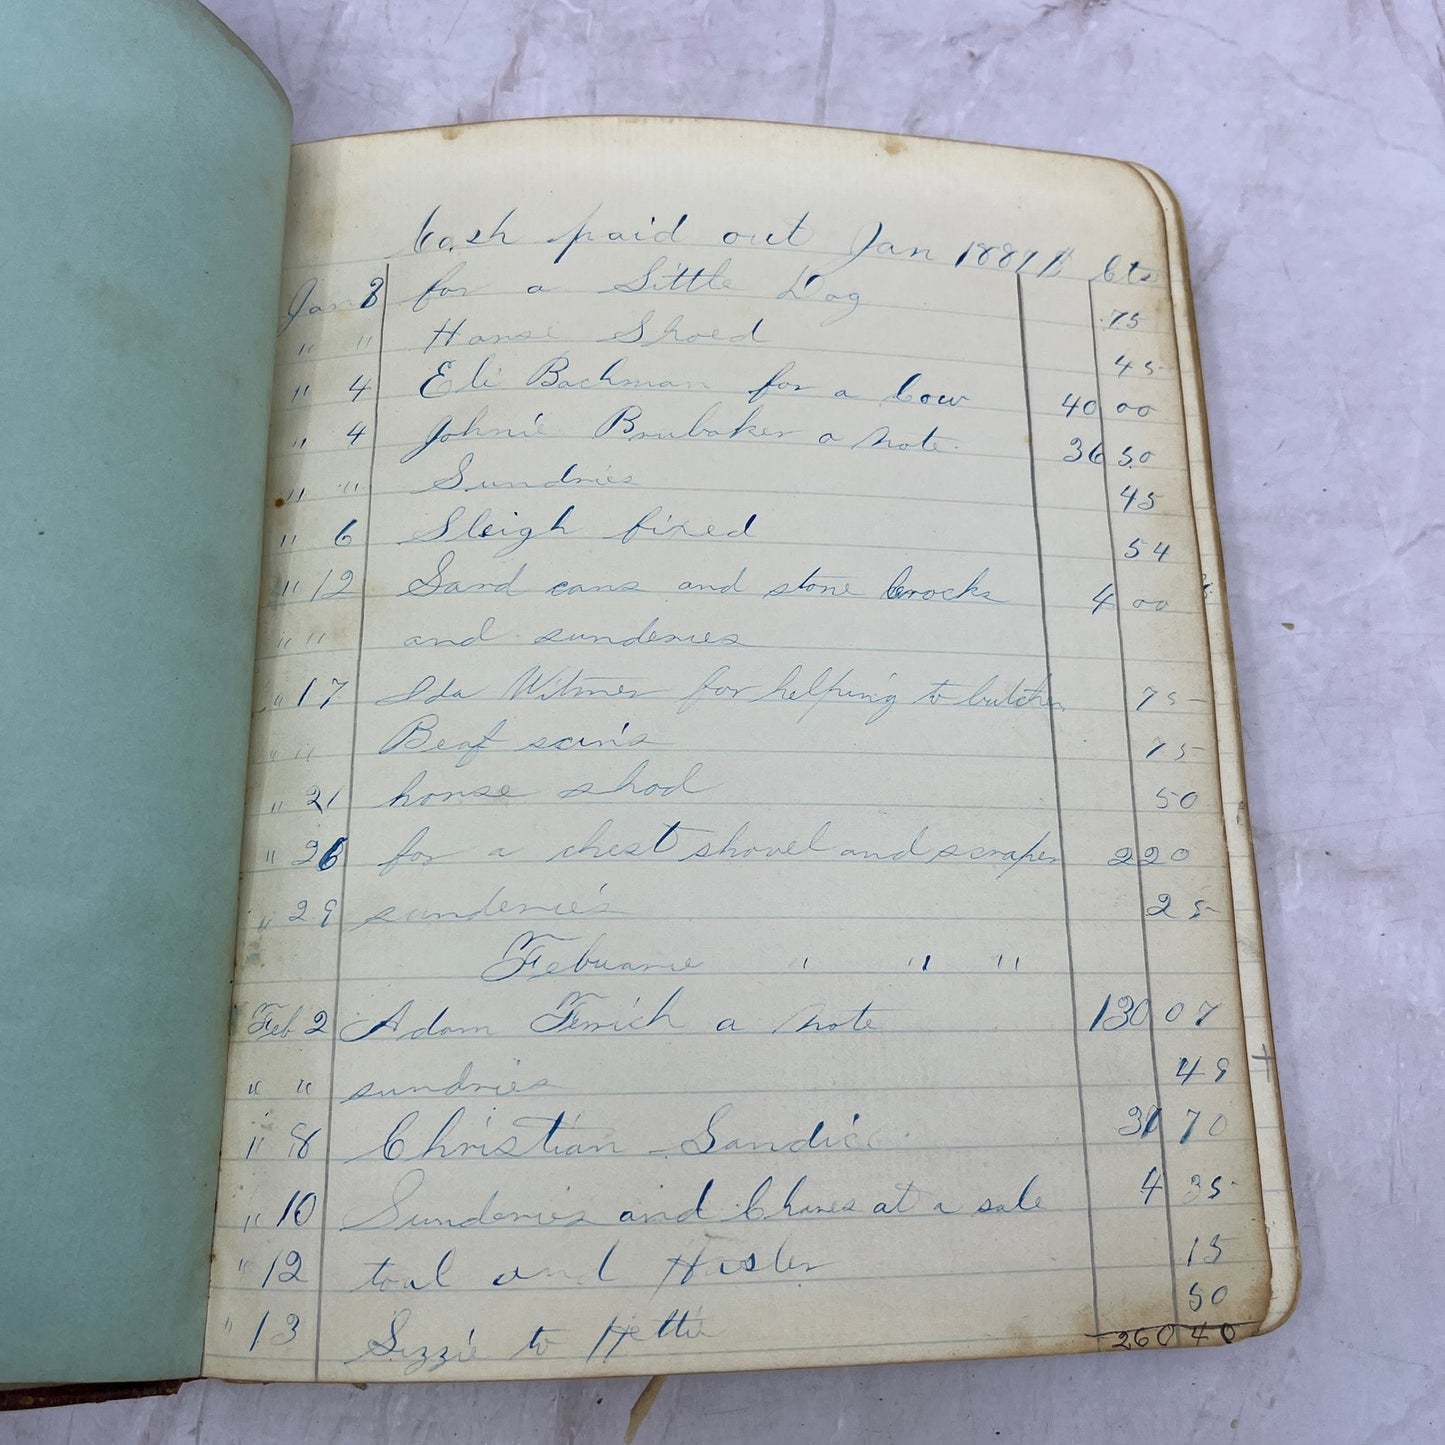 Cash paid out Jan 1889 $ Cts
Jan 3 for a Little Dog 75
" " Horse Shoed 45
" 4 Eli Bachman for a Cow 40 00
" 4 Johnie Brubaker a note. 36 50
" " Sundries 45
" 6 Sleigh fixed 54
" 12 Sard cans and stone Crocks 4 00
" " and sunderies
" 17 Ida Witmer for helping to butcher 75
" " Beaf scin's 75
" 21 horse shod 50
" 26 for a chest shovel and scraper 2 20
" 29 sunderies 25
Febuarie " " "
Feb 2 Adam Ferrich a note 130 07
" " sundries 49
" 8 Christian Landic 31 70
" 10 Sunderies and Chanes at a sale 4 35
" 12 toal and Hasler 15
" 13 Lizzie to Hettie 50
260 40